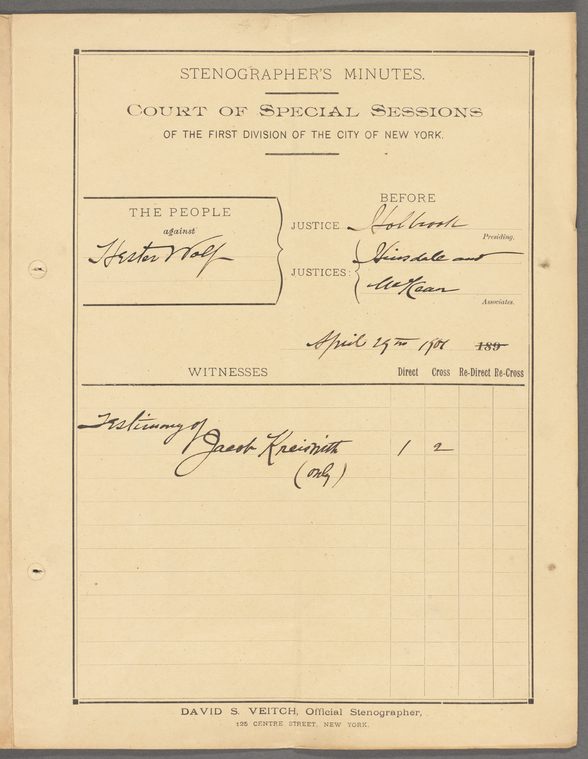 STENOGRAPHER'S MINUTES.
COURT OF SPECIAL SESSIONS
OF THE FIRST DIVISION OF THE CITY OF NEW YORK.
BEFORE
THE PEOPLE
against
Hester Wolf
JUSTICE Holbrook
Presiding.
JUSTICES: Hinsdale and
McKean
Associates.
April 29th 1901 189
WITNESSES Direct Cross Re-Direct Re-Cross
Testimony of
Jacob 1 2
(only)
DAVID S. VEITCH, Official Stenographer,
125 CENTRE STREET, NEW YORK.